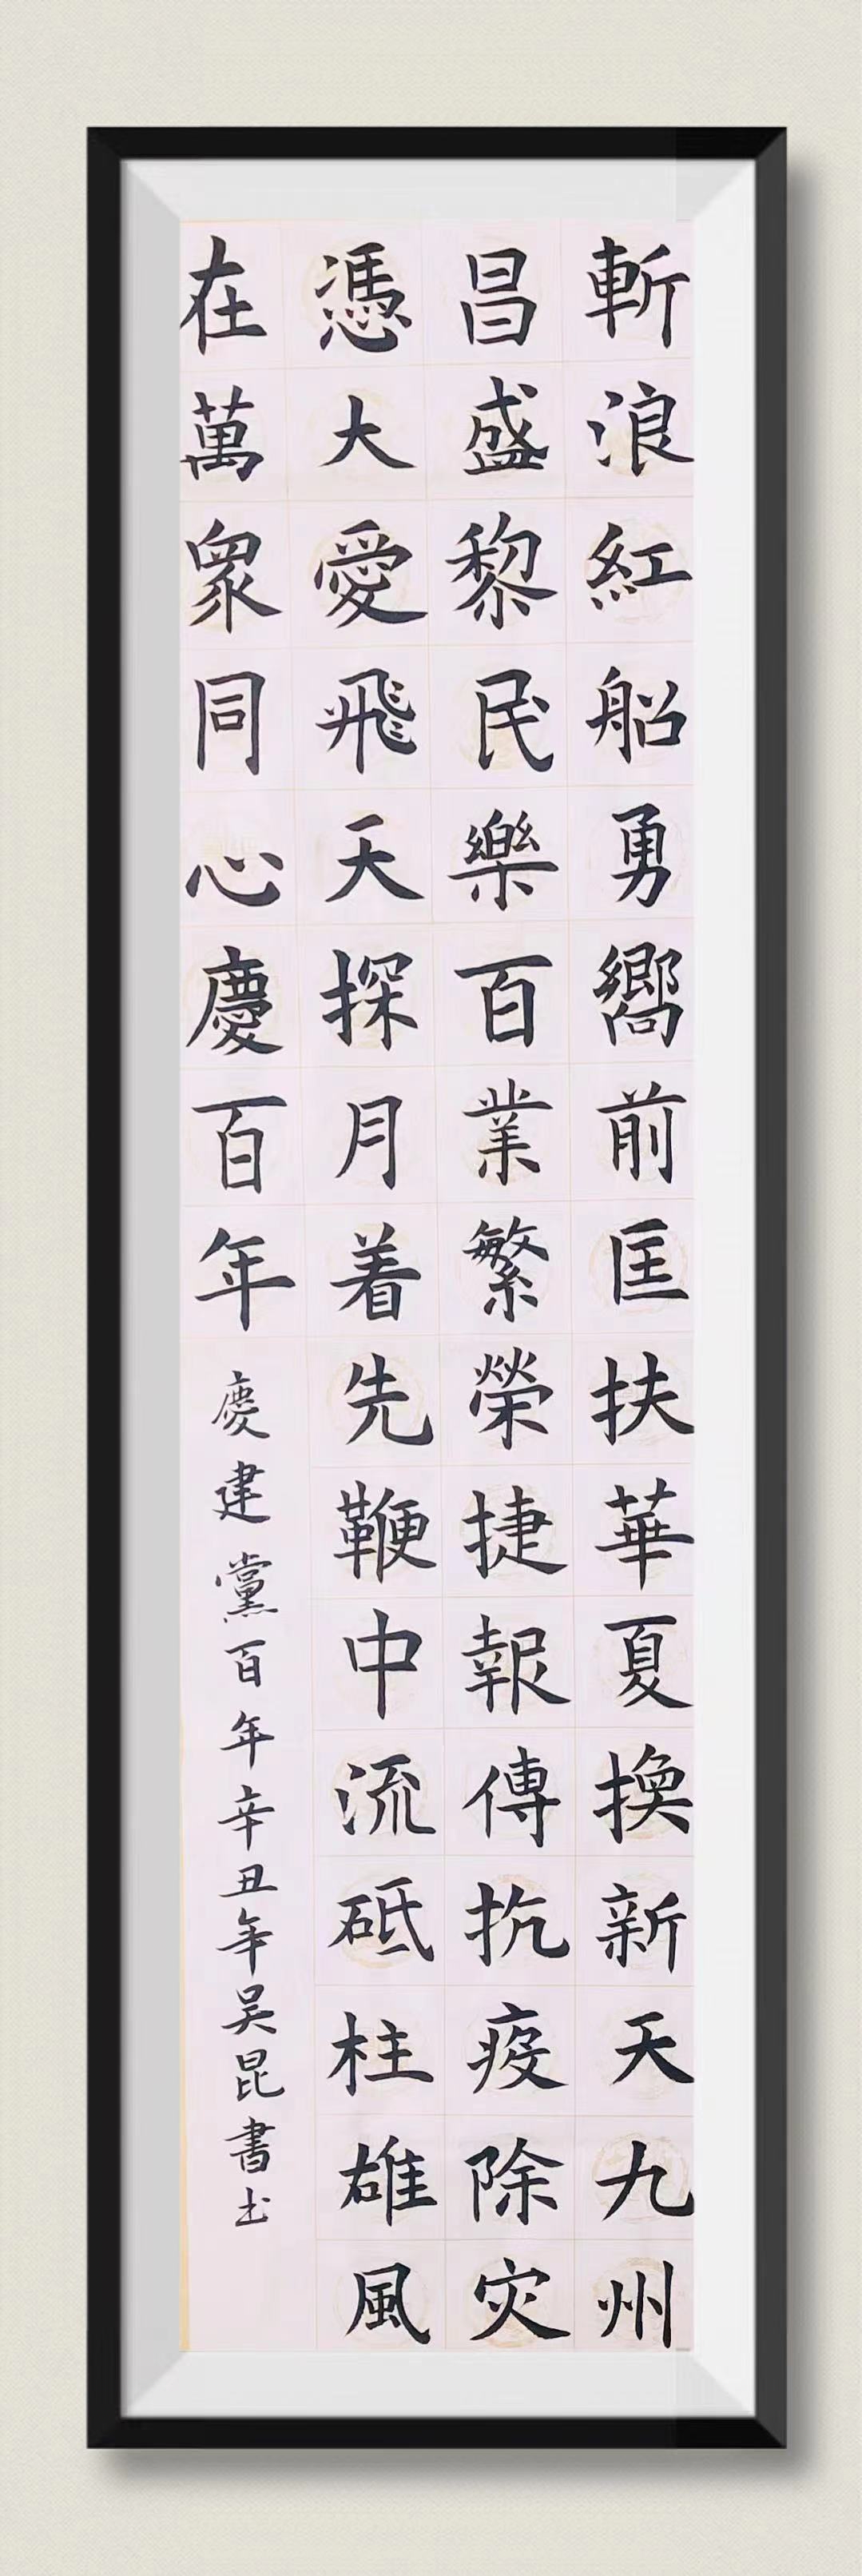 斬浪紅船勇嚮前匡扶華夏換新天九州
昌盛黎民樂百業繁榮捷報傳抗疫除灾
憑大愛飛天探月着先鞭中流砥柱雄風
在萬衆同心慶百年
慶建黨百年辛丑年吴昆書